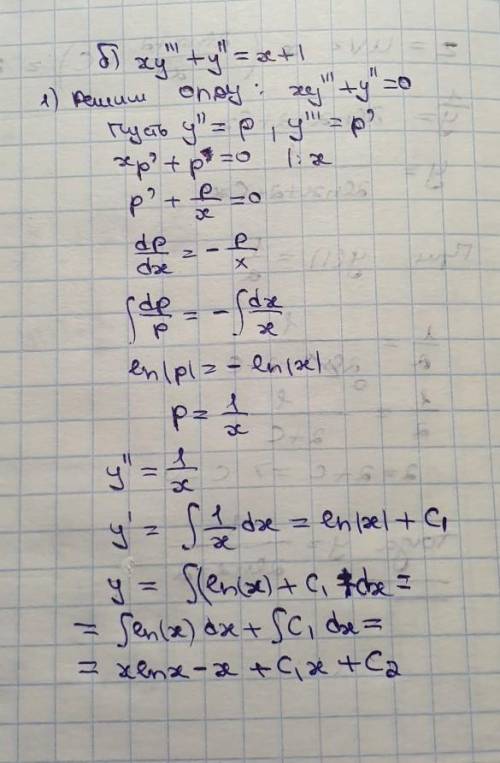 б) xy''' + y'' = x+1
1) Решим ОЛДУ: xy''' + y'' = 0
Пусть y'' = p, y''' = p'
xp' + p = 0 |:x
p' + p/x = 0
dp/dx = - p/x
∫ dp/p = - ∫ dx/x
ln|p| = - ln|x|
p = 1/x
y'' = 1/x
y' = ∫ 1/x dx = ln|x| + C₁
y = ∫(ln(x) + C₁ dx =
= ∫ln(x) dx + ∫C₁ dx =
= xlnx - x + C₁x + C₂